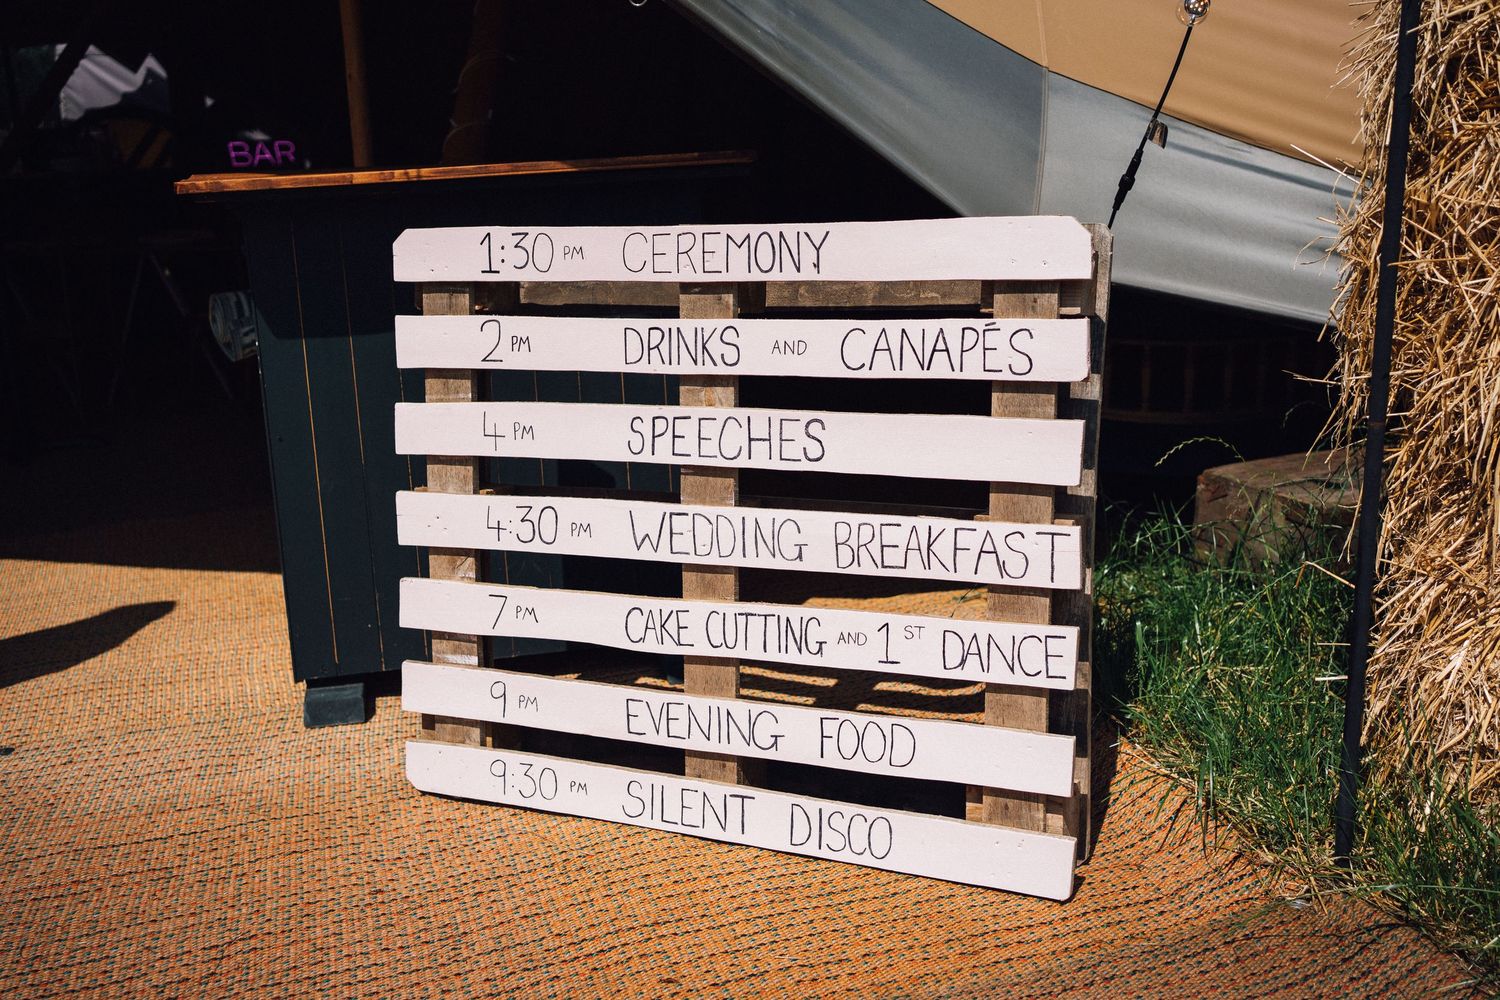 BAR
1:30 PM CEREMONY
2 PM DRINKS AND CANAPÉS
4 PM SPEECHES
4:30 PM WEDDING BREAKFAST
7 PM CAKE CUTTING AND 1ST DANCE
9 PM EVENING FOOD
9:30 PM SILENT DISCO